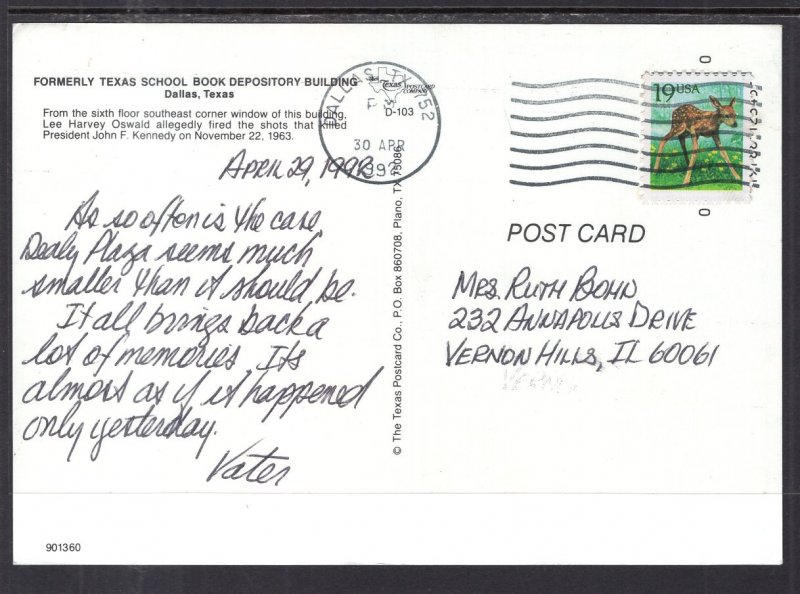 FORMERLY TEXAS SCHOOL BOOK DEPOSITORY BUILDING
Dallas, Texas
From the sixth floor southeast corner window of this building,
Lee Harvey Oswald allegedly fired the shots that killed
President John F. Kennedy on November 22, 1963.
Texas POSTCARD
COMPANY
D-103
DALLAS, TX 752
PM
30 APR
1992
19 USA
0
0
APRIL 29, 1992
As so often is the case,
Dealy Plaza seems much
smaller than it should be.
It all brings back a
lot of memories. It's
almost as if it happened
only yesterday.
Vater
© The Texas Postcard Co., P.O. Box 860708, Plano, TX 75086
POST CARD
MRS. RUTH BOHN
232 ANNAPOLIS DRIVE
VERNON HILLS, IL 60061
901360